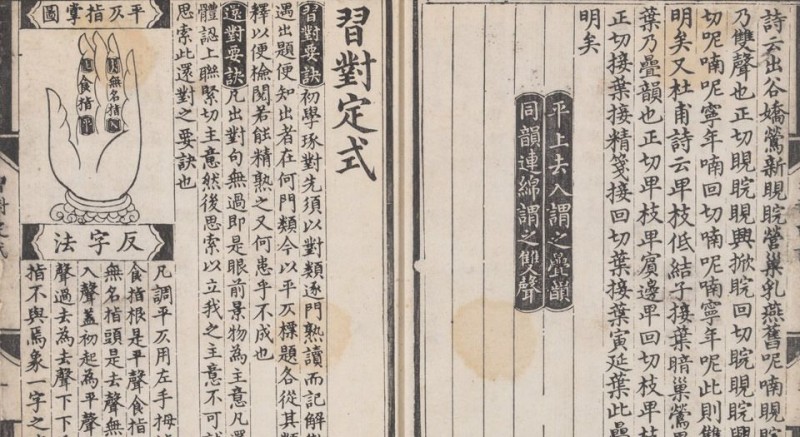 詩云出谷嬌鶯新睍睆營巢乳燕舊呢喃睍睆
乃雙聲也正切睍睆睍興掀睆回切睆睍
切呢喃呢寧年喃回切喃呢喃寧年呢此則雙
明矣又杜甫詩云卑枝低結子接葉暗巢鶯
葉乃疊韻也正切卑枝卑賓邊卑回切枝卑枝
正切接葉接精箋接回切葉接葉寅延葉此疊
明矣
平上去入謂之疊韻
同韻連綿謂之雙聲
習對定式
習對要訣初學琢對先須以對類逐門熟讀而記解
遇出題便知出者在何門類今以平仄棵題各從其類
釋以便檢閱若能精熟之又何患乎不成也
還對要訣凡出對句無過即是眼前景物為主意凡還
體認上聯緊切主意然後思索以立我之主意不可
思索此還對之要訣也
平仄指掌圖
無名指
食指
反字法
凡調平仄用左手拇
食指根是平聲食指
無名指頭是去聲無
入聲蓋初起為平聲
聲過去為去聲下下
指不與焉象一字之